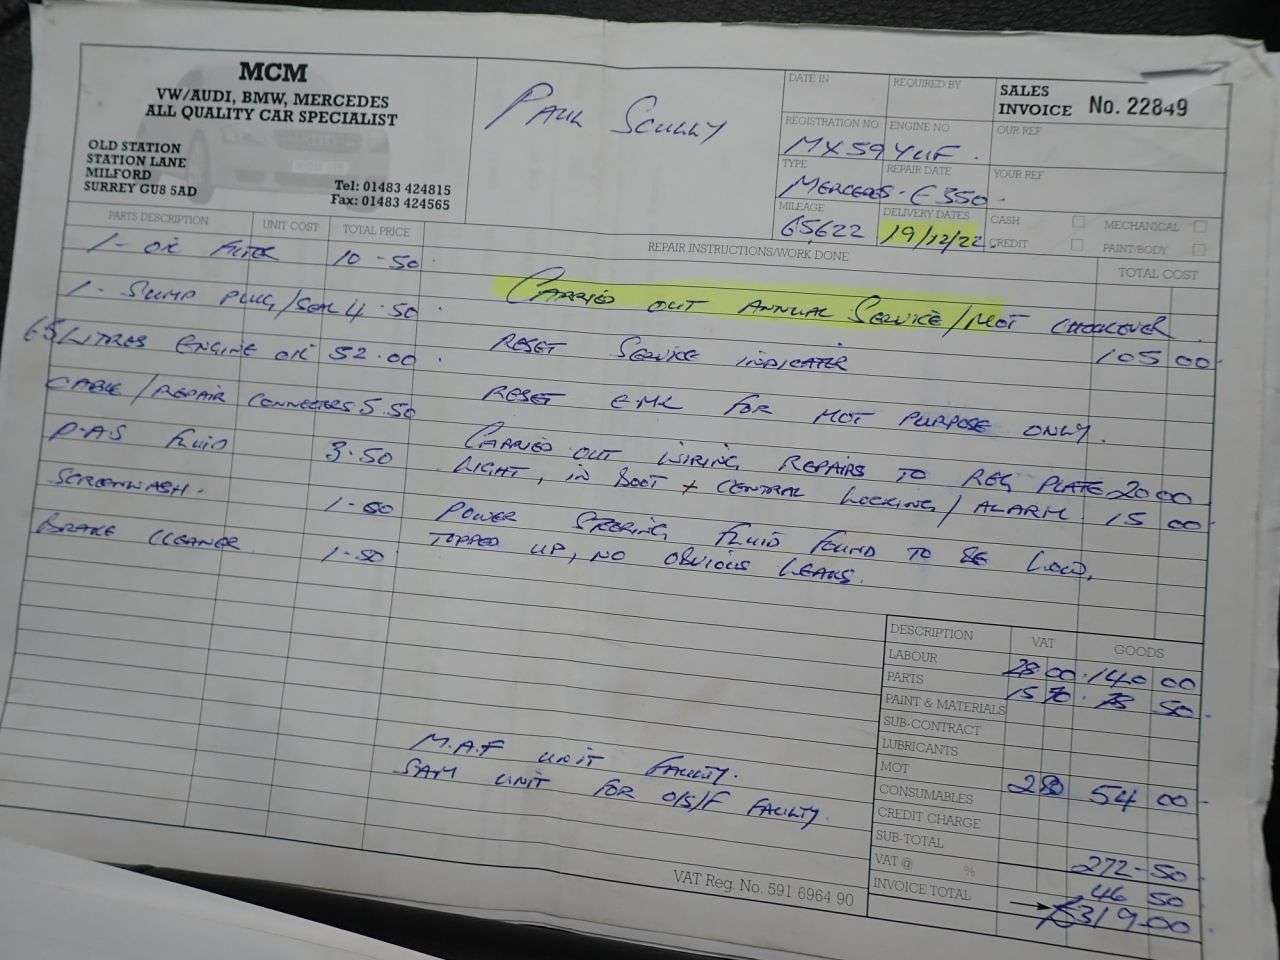 MCM
VW/AUDI, BMW, MERCEDES
ALL QUALITY CAR SPECIALIST
OLD STATION
STATION LANE
MILFORD
SURREY GU8 5AD
Tel: 01483 424815
Fax: 01483 424565
PAUL SCULLY
DATE IN
REQUIRED BY
SALES INVOICE No. 22849
REGISTRATION NO
ENGINE NO
OUR REF
MX59 YUF.
TYPE
REPAIR DATE
YOUR REF
MERCEDES - E350.
MILEAGE
DELIVERY DATES
65,622
19/12/22.
CASH
MECHANICAL
CREDIT
PAINT/BODY
PARTS DESCRIPTION UNIT COST TOTAL PRICE
REPAIR INSTRUCTIONS/WORK DONE
TOTAL COST
1 - OIL FILTER 10-50
1 - SUMP PLUG/SEAL 4.50
6.5 LITRES ENGINE OIL 52.00
CABLE/REPAIR CONNECTERS 5.50
P-A-S FLUID 3.50
SCREENWASH. 1-50
BRAKE CLEANER 1-50
CARRIED OUT ANNUAL SERVICE/MOT CHECKOVER
RESET SERVICE INDICATER 105 00
RESET EML FOR MOT PURPOSE ONLY.
CARRIED OUT WIRING REPAIRS TO REG PLATE 20 00
LIGHT, IN BOOT + CENTRAL LOCKING/ALARM. 15 00
POWER STEERING FLUID FOUND TO BE LOW,
TOPPED UP, NO OBVIOUS LEAKS.
M.A.F UNIT FAULTY.
SAM UNIT FOR O/S/F FAULTY.
DESCRIPTION VAT GOODS
LABOUR 28 00 140 00
PARTS 15 70 78 50
PAINT & MATERIALS
SUB-CONTRACT
LUBRICANTS
MOT
CONSUMABLES 2 80 54 00
CREDIT CHARGE
SUB-TOTAL
VAT @ % 272-50
INVOICE TOTAL 46 50
£319-00
VAT Reg. No. 591 6964 90